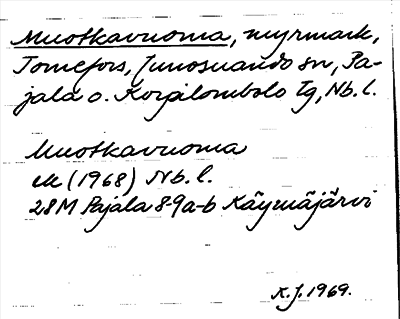 Muotkavuoma, myrmark,
Tornefors, Junosuando sn, Pa-
jala o. Korpilombolo Tg, Nb. l.
Muotkavuoma
ek (1968) Nb. l.
28M Pajala 8-9a-b Käymäjärvi
K.J. 1969.